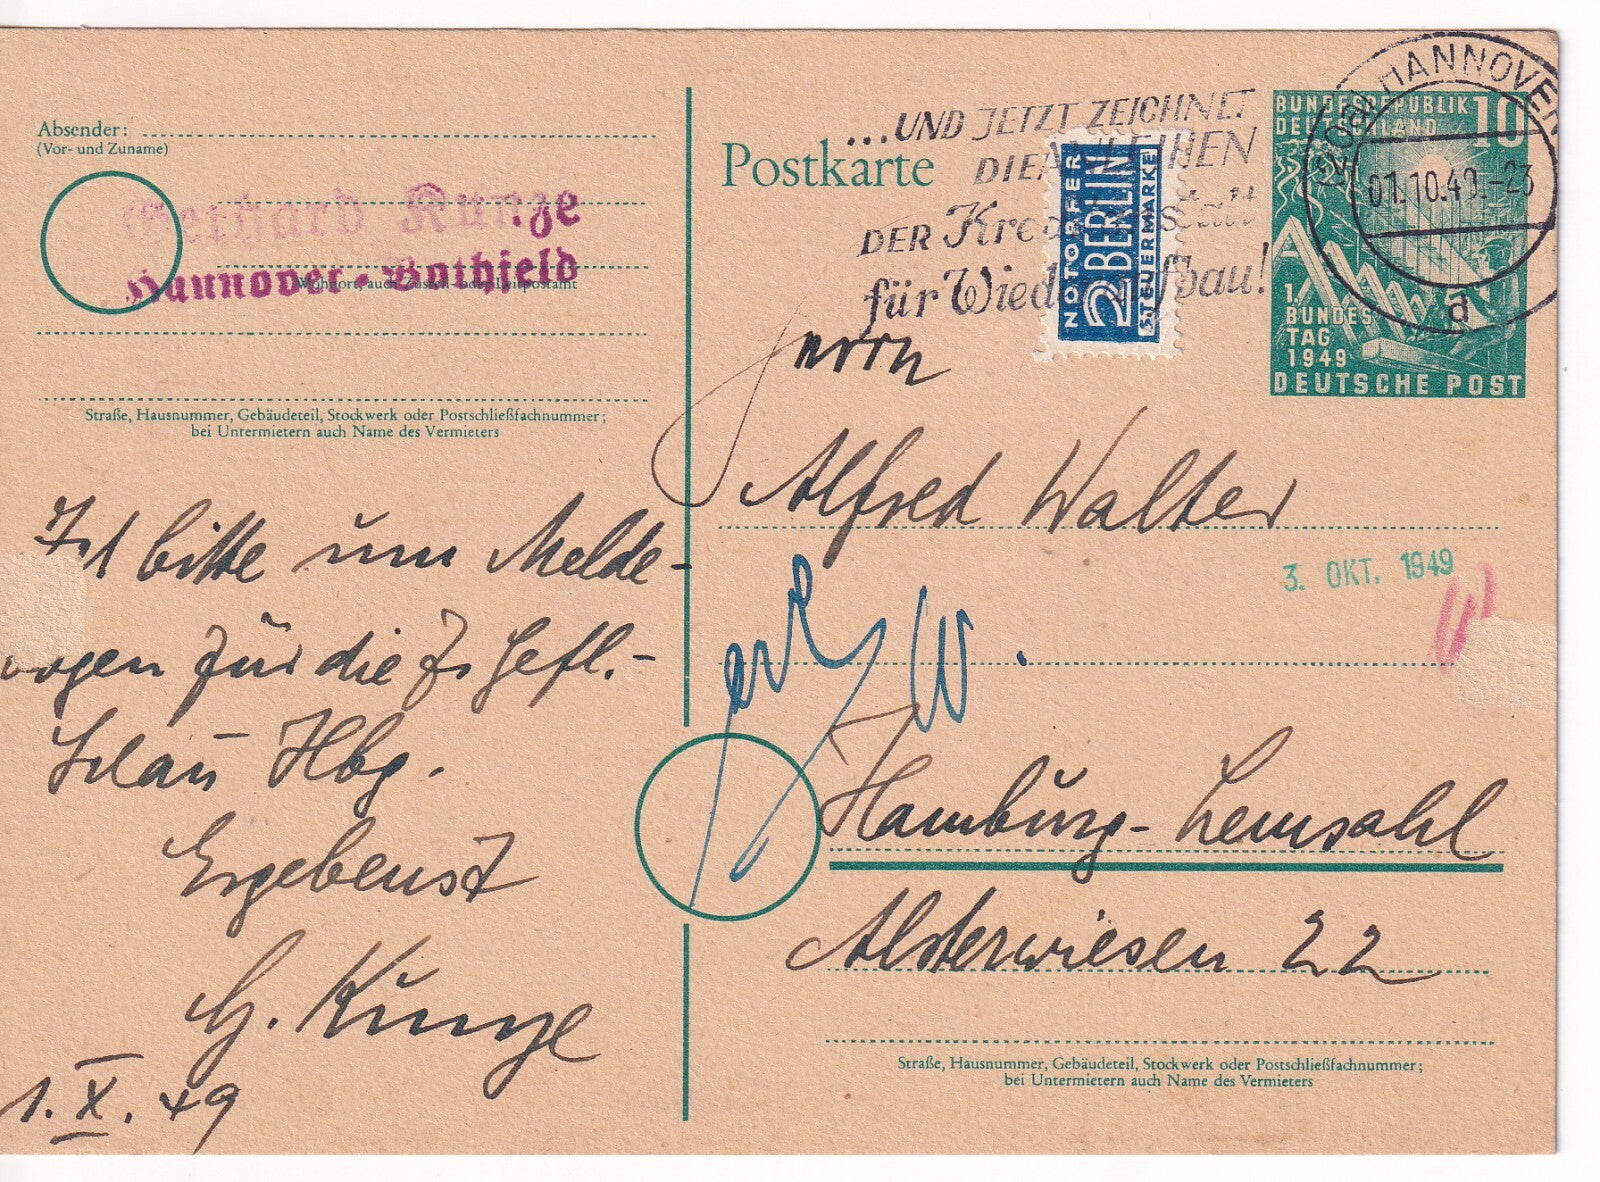 Absender:
(Vor- und Zuname)
Gerhard Kunze
Hannover-Bothfeld
Wohnort, auch Zustell- oder Leitpostamt
Straße, Hausnummer, Gebäudeteil, Stockwerk oder Postschließfachnummer;
bei Untermietern auch Name des Vermieters
Ich bitte um Melde-
bogen für die Gefl.-
Schau Hbg.
Ergebenst
G. Kunze
1. X. 49
Postkarte
...UND JETZT ZEICHNET
DIE ANLEIHEN
DER
für Wiederaufbau!
NOTOPFER
2 BERLIN
STEUERMARKE
BUNDESREPUBLIK 10
DEUTSCHLAND
1.
BUNDES
TAG
1949
DEUTSCHE POST
HANNOVER
01.10.49.-23
d
Herrn
Alfred Walter
3. OKT. 1949
Hamburg-Lemsahl
Alsterwiesen 22
Straße, Hausnummer, Gebäudeteil, Stockwerk oder Postschließfachnummer;
bei Untermietern auch Name des Vermieters